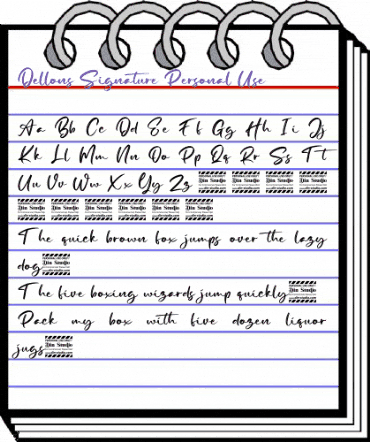 Dellons Signature Personal Use
Aa Bb Cc Dd Ee Ff Gg Hh Ii Jj
Kk Ll Mm Nn Oo Pp Qq Rr Ss Tt
Uu Vv Ww Xx Yy Zz
The quick brown fox jumps over the lazy
dog
The five boxing wizards jump quickly
Pack my box with five dozen liquor
jugs